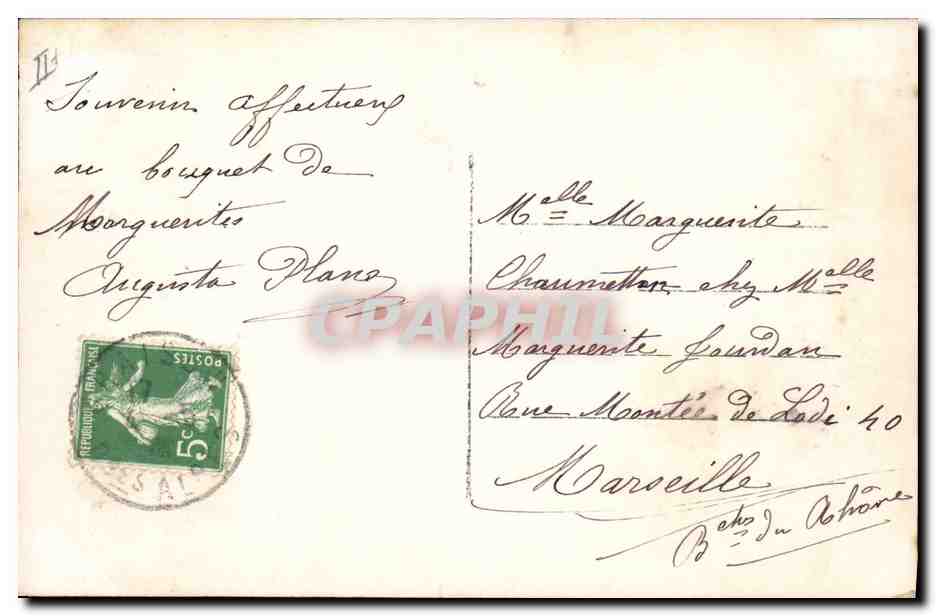 II
Souvenir affectueux
au bouquet de
Marguerites
Augusta Plane
Melle Marguerite
Chaumetton chez Melle
Marguerite Jourdan
Rue Montée de Lodi 40
Marseille
Bches du Rhône
REPUBLIQUE FRANÇAISE
POSTES
5c
ES AL
CPAPHIL